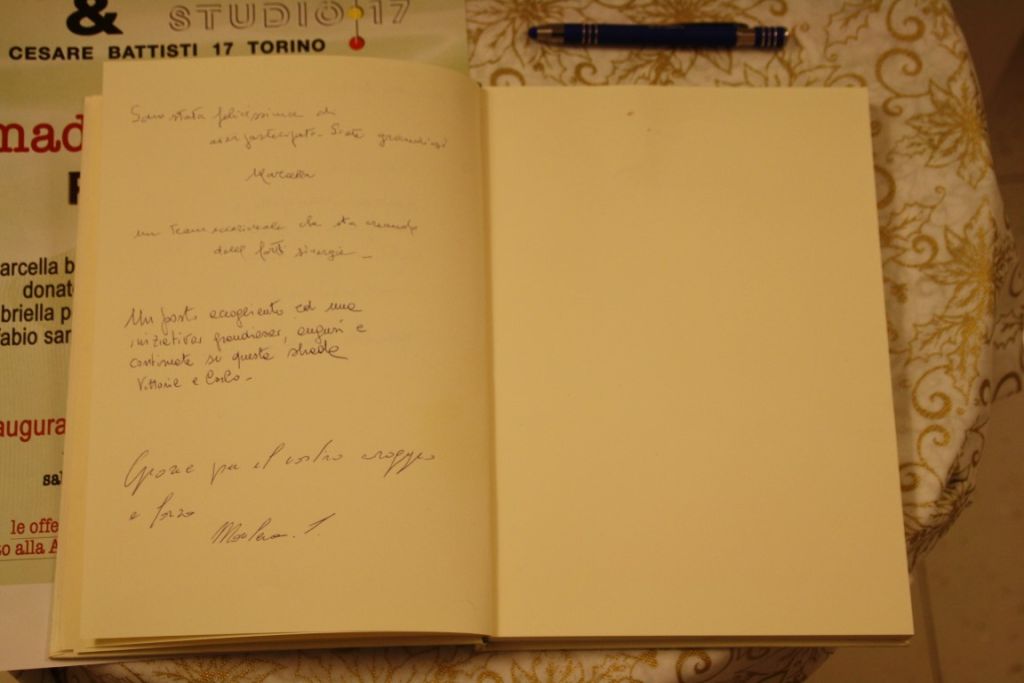 & STUDIO 17
CESARE BATTISTI 17 TORINO
mad
arcella b
donat
briella p
fabio sar
augura
sal
le offe
so alla A
Sono stata felicissima di
aver partecipato. Siete grandiosi
Marcella
un Team eccezionale che sta creando
delle forti sinergie -
Un posto accogliente ed una
iniziativa grandiosa, auguri e
continuate su questa strada
Vittoria e Carlo -
Grazie per il vostro coraggio
e forza